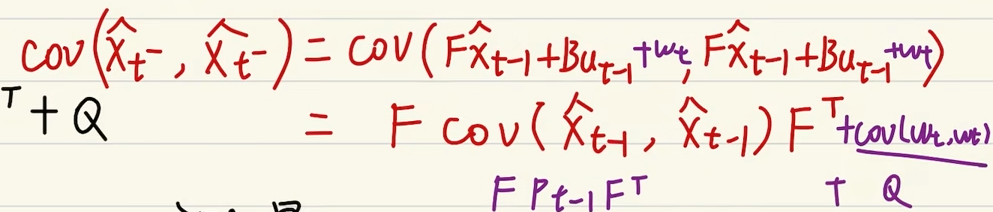 cov(x̂ₜ⁻, x̂ₜ⁻) = cov(Fx̂ₜ₋₁+Buₜ₋₁+wₜ, Fx̂ₜ₋₁+Buₜ₋₁+wₜ)
ᵀ + Q = F cov(x̂ₜ₋₁, x̂ₜ₋₁) Fᵀ + cov(wₜ, wₜ)
F Pₜ₋₁ Fᵀ + Q